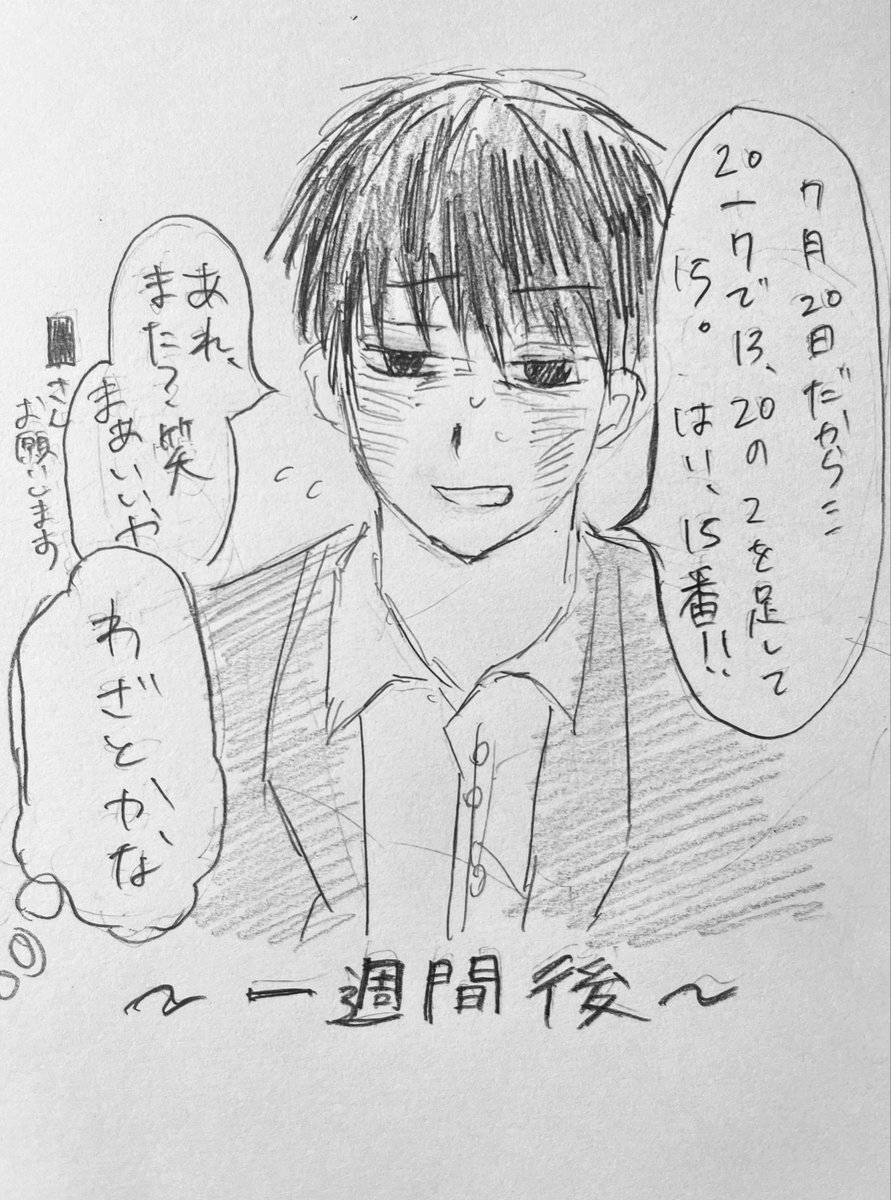 7月20日だから…
20-7で13、20の2を足して
15。はい、15番!!
あれ、
また?笑
まぁいいや
さん
お願いします
わざとかな
～一週間後～